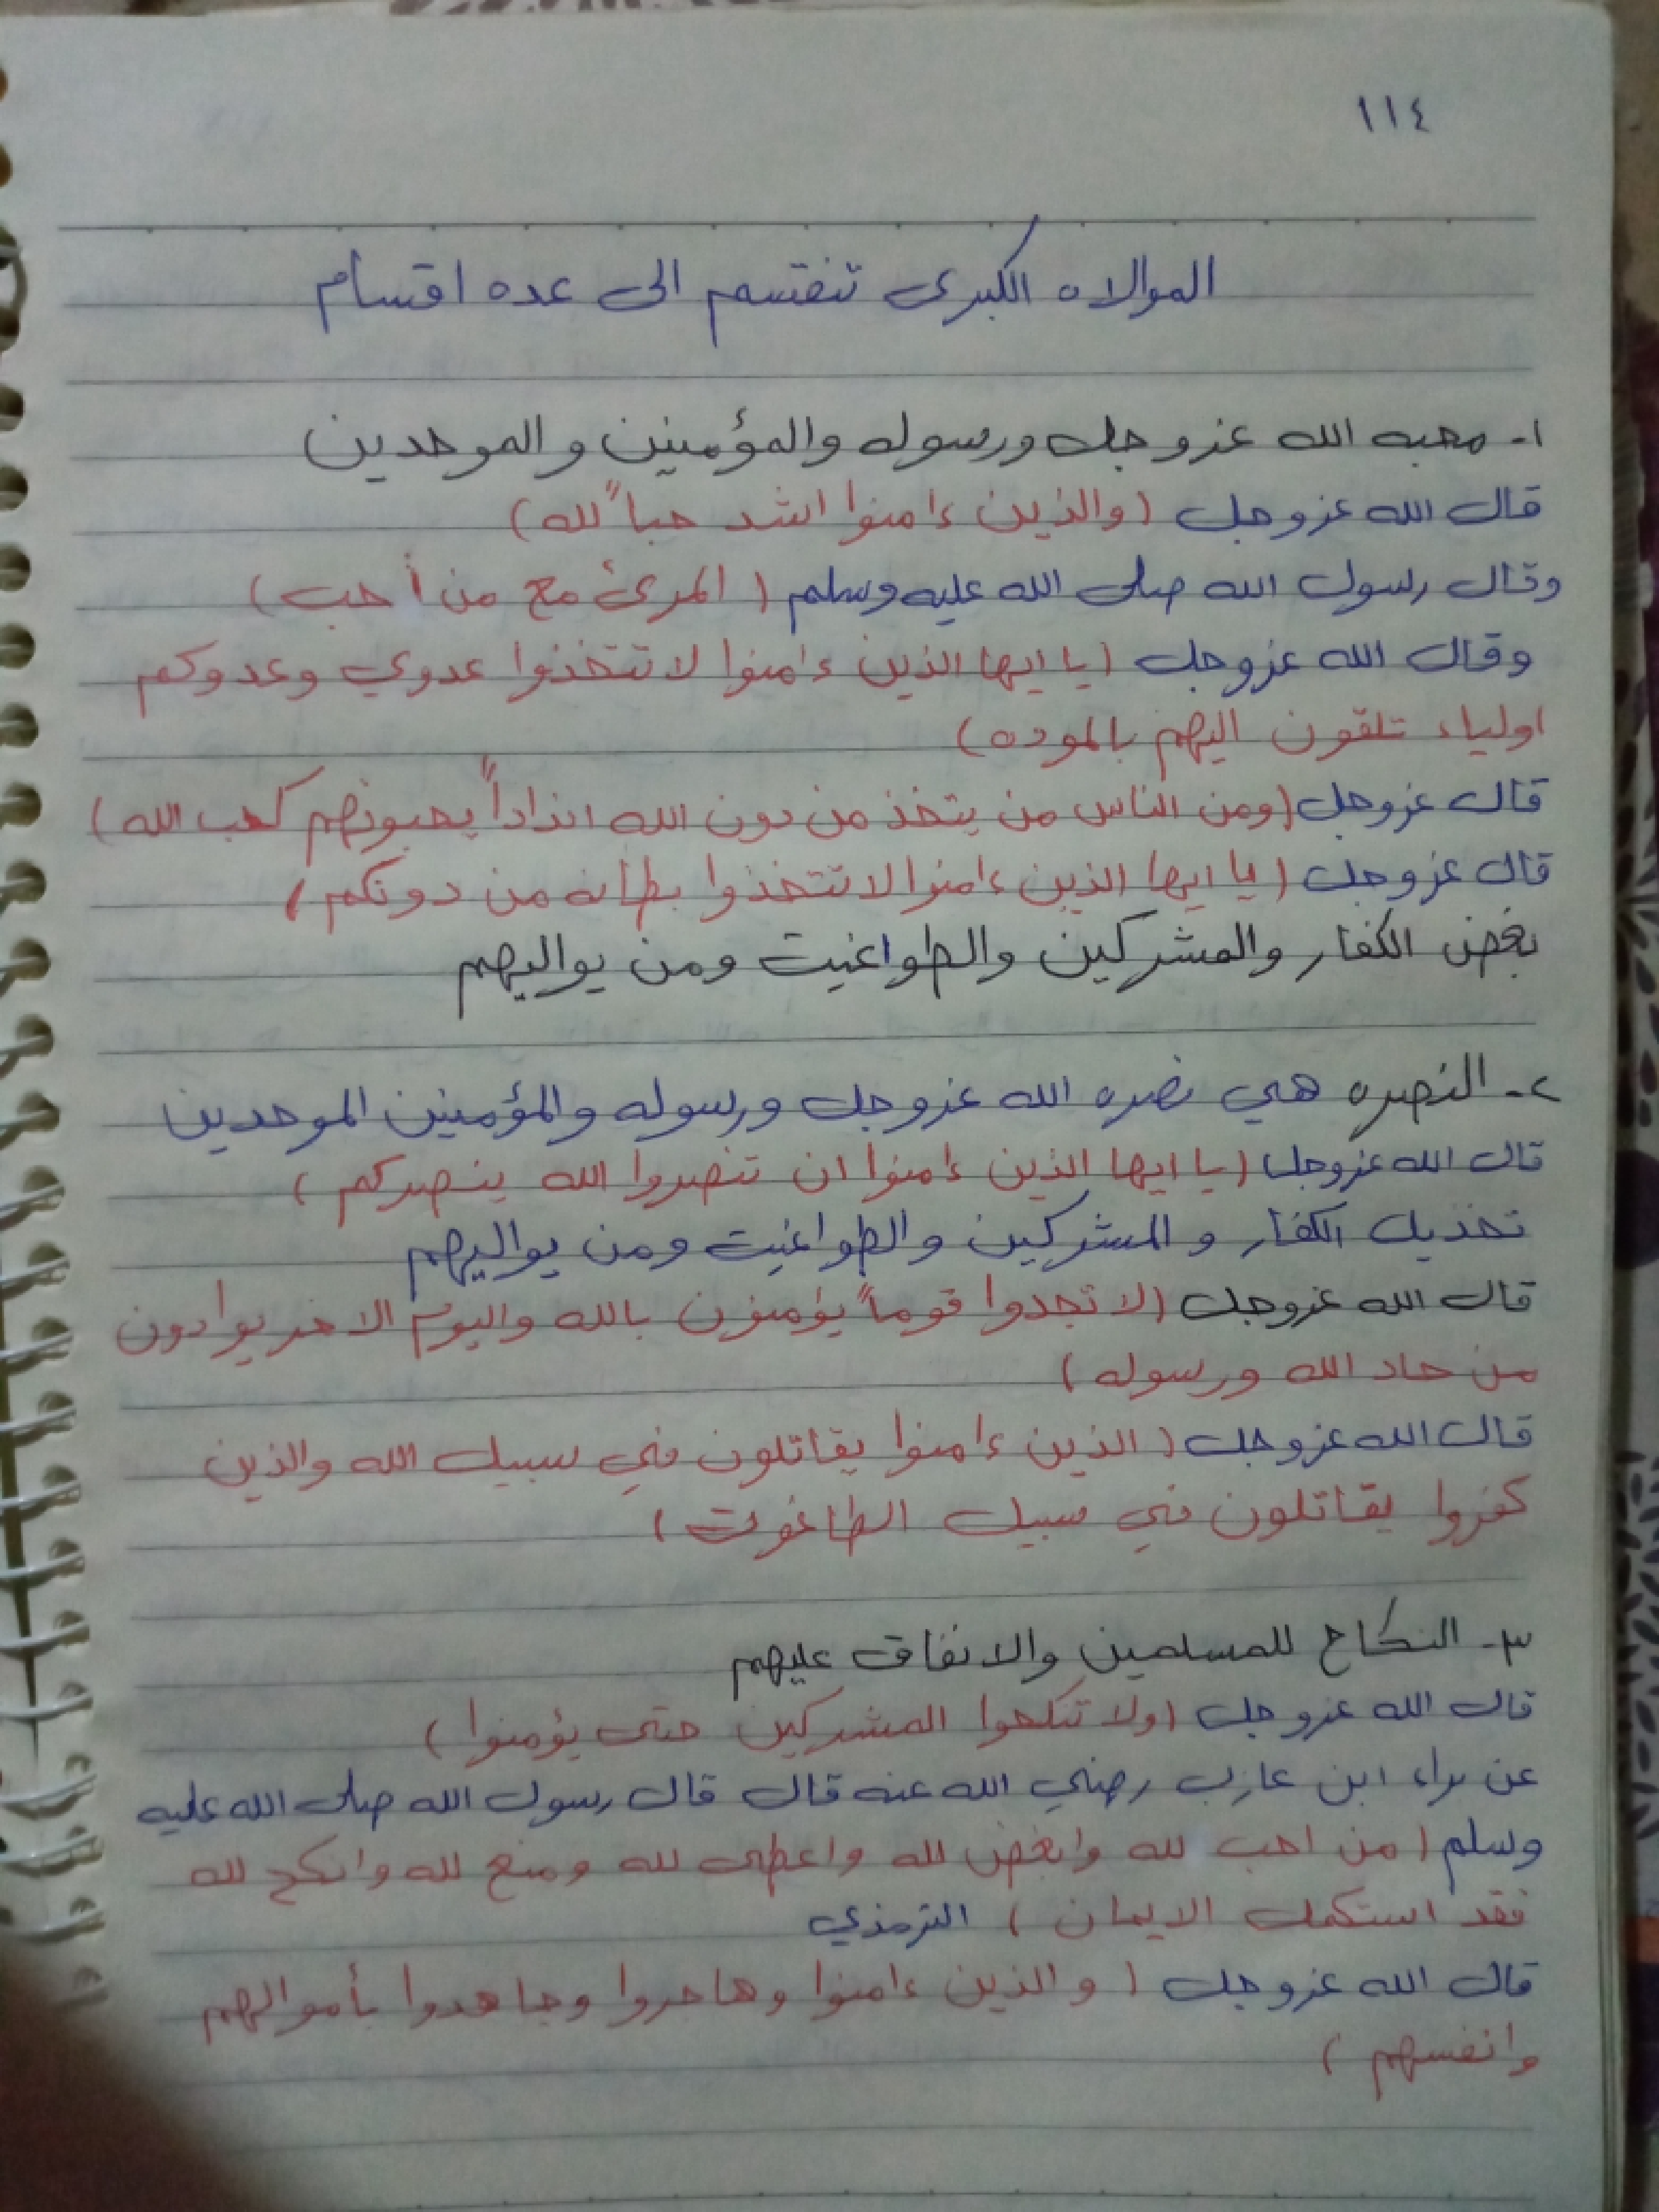 ١١٤
الموالاه الكبرى تنقسم الى عده اقسام
١- محبه الله عزوجل ورسوله والمؤمنين والموحدين
قال الله عزوجل (والذين ءامنوا اشد حباً لله)
وقال رسول الله صلى الله عليه وسلم (المرئ مع من أحب)
وقال الله عزوجل (يا ايها الذين ءامنوا لا تتخذوا عدوي وعدوكم
اولياء تلقون اليهم بالموده)
قال عزوجل (ومن الناس من يتخذ من دون الله انداداً يحبونهم كحب الله)
قال عزوجل (يا ايها الذين ءامنوا لا تتخذوا بطانه من دونكم)
بغض الكفار والمشركين والطواغيت ومن يواليهم
٢- النصره هي نصره الله عزوجل ورسوله والمؤمنين الموحدين
قال الله عزوجل (يا ايها الذين ءامنوا ان تنصروا الله ينصركم)
تخذيل الكفار والمشركين والطواغيت ومن يواليهم
قال الله عزوجل (لا تجدوا قوماً يؤمنون بالله واليوم الاخر يوادون
من حاد الله ورسوله)
قال الله عزوجل (الذين ءامنوا يقاتلون في سبيل الله والذين
كفروا يقاتلون في سبيل الطاغوت)
٣- النكاح للمسلمين والانفاق عليهم
قال الله عزوجل (ولا تنكحوا المشركين حتى يؤمنوا)
عن براء ابن عازب رضي الله عنه قال قال رسول الله صلى الله عليه
وسلم (من احب لله وابغض لله واعطى لله ومنع لله وانكح لله
فقد استكمل الايمان) الترمذي
قال الله عزوجل (والذين ءامنوا وهاجروا وجاهدوا بأموالهم
وانفسهم)